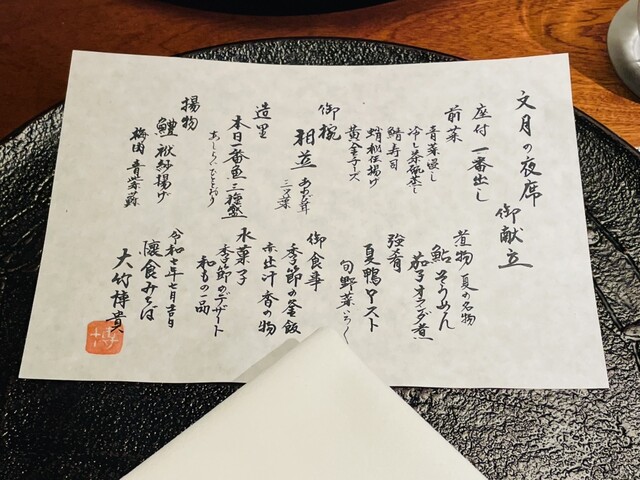 文月の夜席
御献立
座付 一番出し
前菜
青菜浸し
冷し茶碗蒸し
鯖寿司
揚げ
黄金チーズ
御椀
相並
三つ葉
造里
本日一番魚三種盛
あしらいひととおり
揚物
鱧 紗揚げ
梅肉 青紫蘇
煮物 夏の名物
鮎そうめん
茄子オランダ煮
強肴
夏鴨ロースト
旬野菜いろいろ
御食事
季節の釜飯
赤出汁 香の物
水菓子
季節のデザート
和もの一品
令和七年七月吉日
懐食みちば
大竹博貴
博